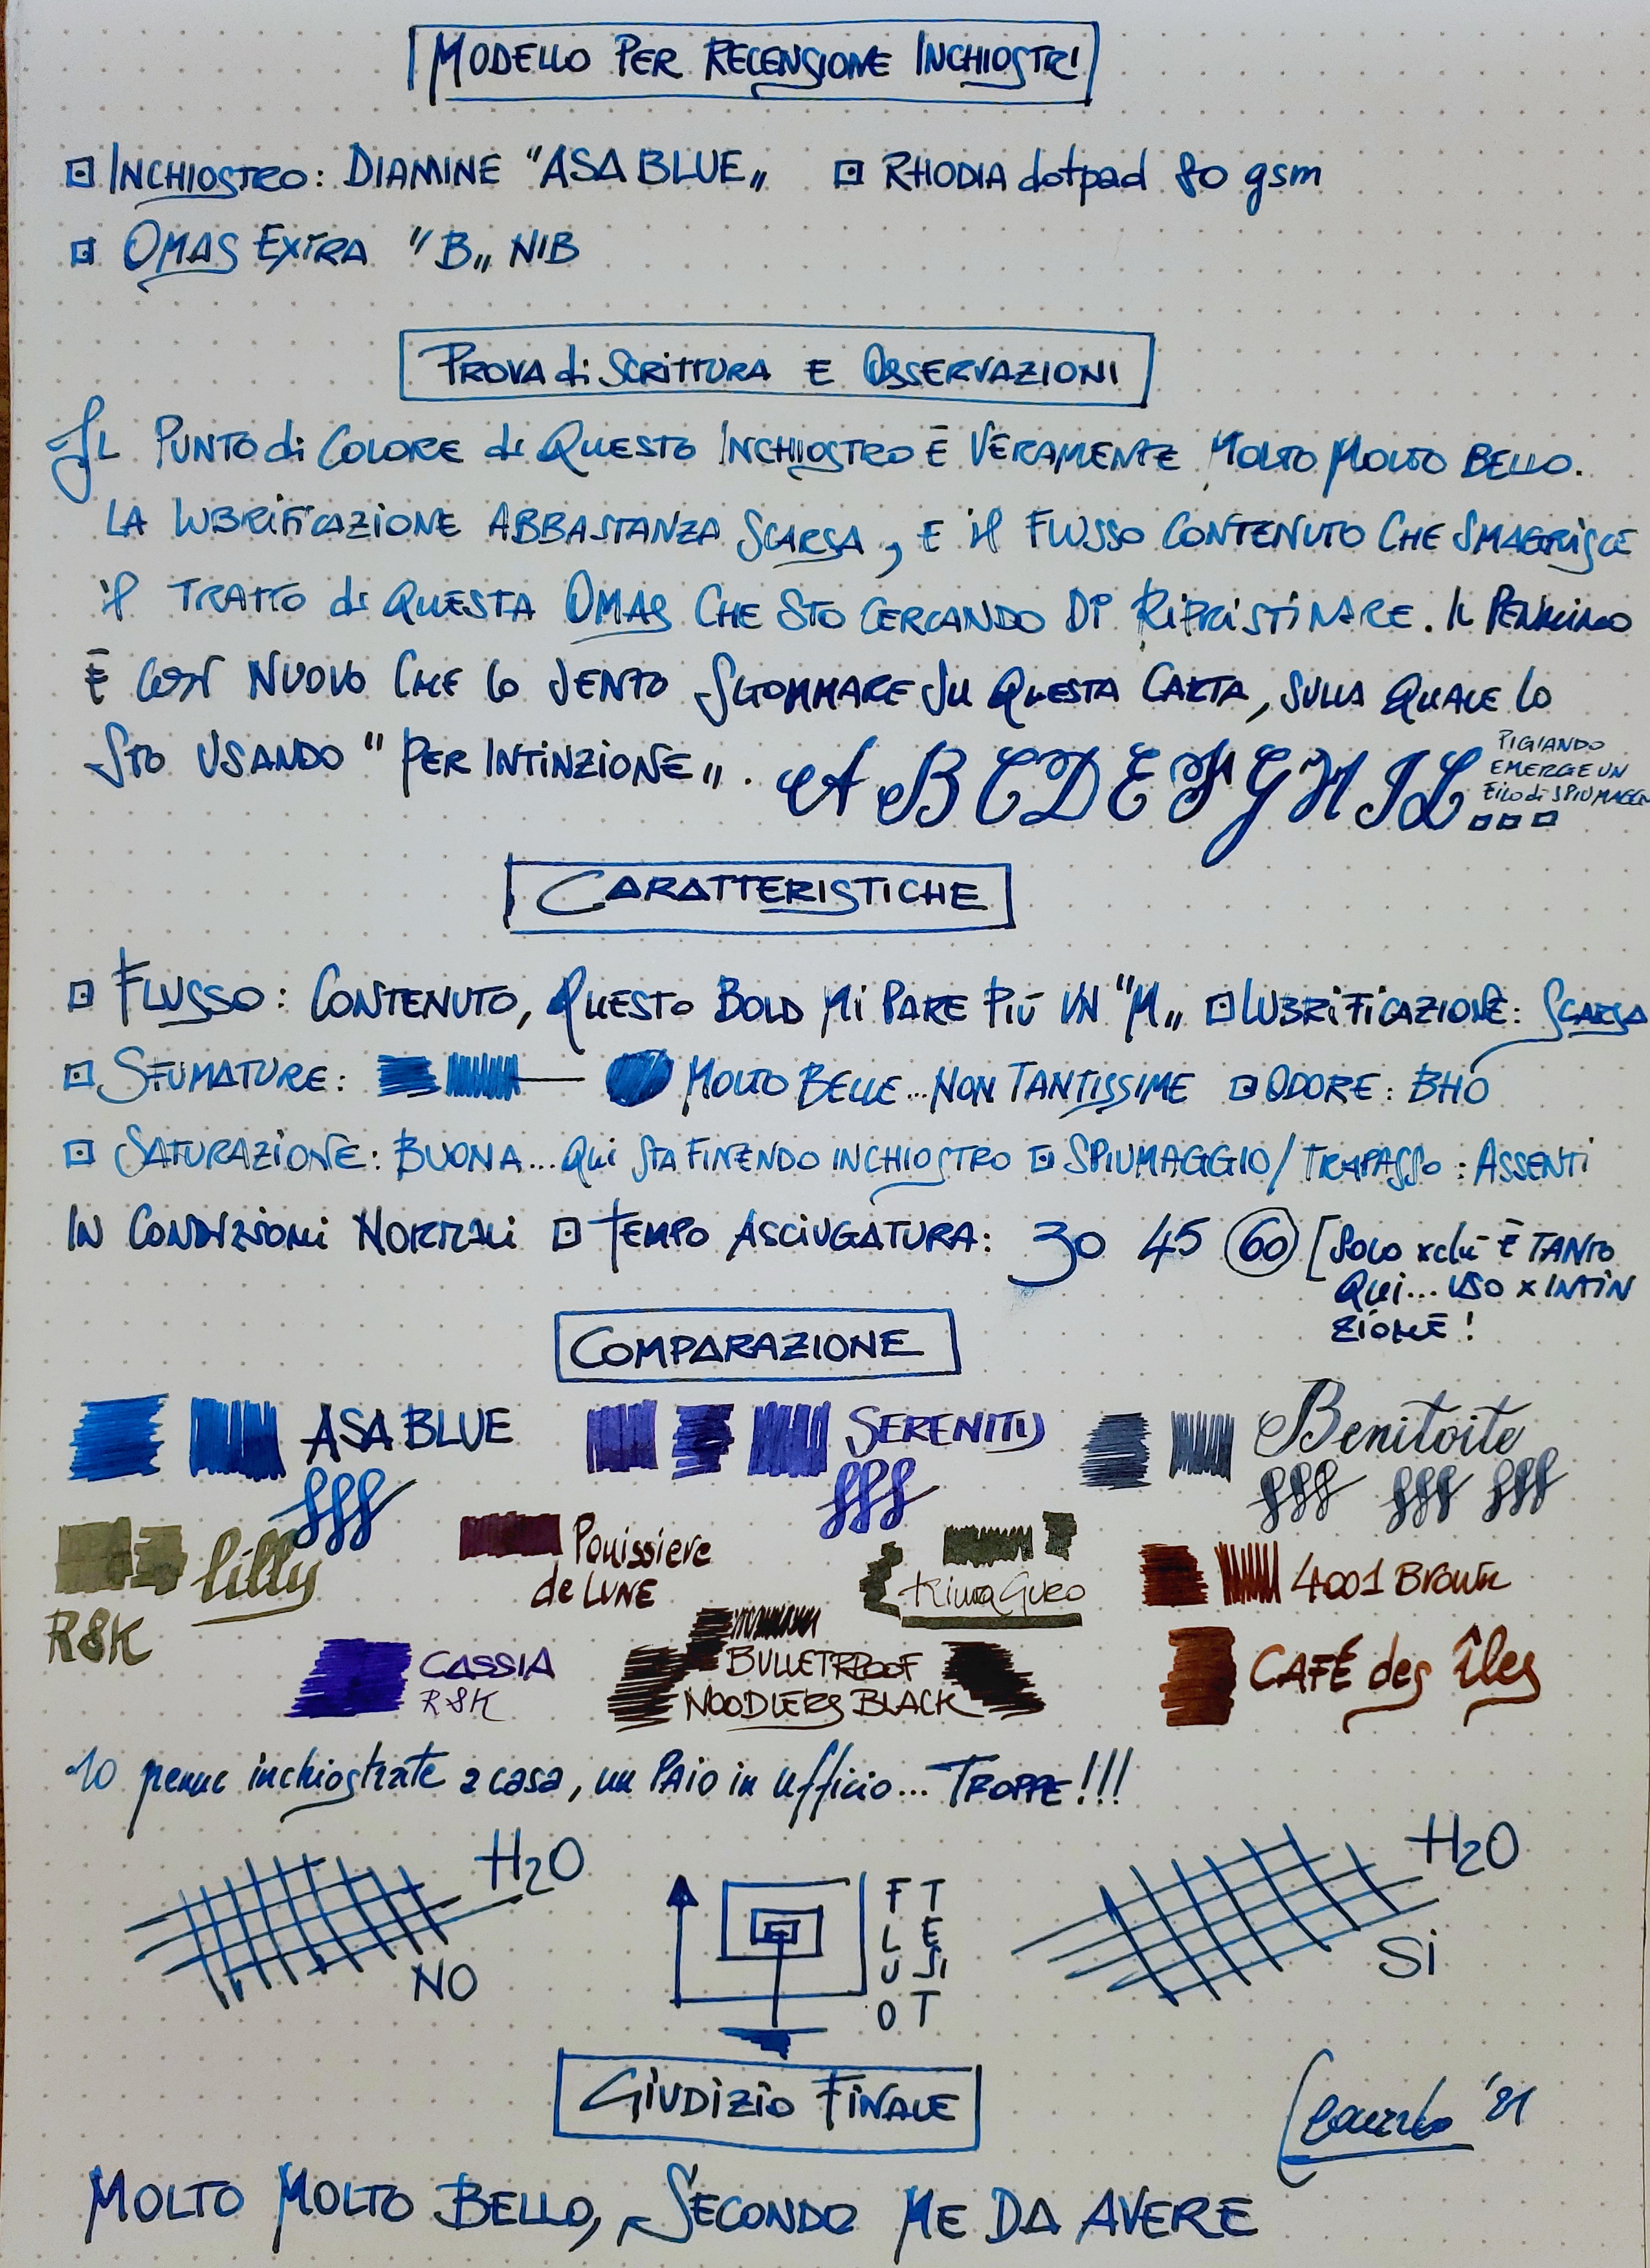 MODELLO PER RECENSIONE INCHIOSTRI
INCHIOSTRO: DIAMINE "ASA BLUE„ RHODIA dotpad 80 gsm
OMAS EXTRA "B„ NIB
PROVA di SCRITTURA E OSSERVAZIONI
IL PUNTO di COLORE di QUESTO INCHIOSTRO È VERAMENTE MOLTO MOLTO BELLO.
LA LUBRIFICAZIONE ABBASTANZA SCARSA, E il FLUSSO CONTENUTO CHE SMAGRISCE
il TRATTO di QUESTA OMAS CHE STO CERCANDO DI RIPRISTINARE. IL PENNINO
È COSÌ NUOVO CHE lo SENTO SGOMMARE SU QUESTA CARTA, SULLA QUALE lo
STO USANDO "PER INTINZIONE„. A B C D E F G H I L
PIGIANDO
EMERGE UN
FILO di SPIUMAGGIO
CARATTERISTICHE
FLUSSO: CONTENUTO, QUESTO BOLD MI PARE PIÙ UN "M„ LUBRIFICAZIONE: SCARSA
SFUMATURE: MOLTO BELLE... NON TANTISSIME ODORE: BHO
SATURAZIONE: BUONA... QUI STA FINENDO INCHIOSTRO SPIUMAGGIO/TRAPASSO: ASSENTI
IN CONDIZIONI NORMALI TEMPO ASCIUGATURA: 30 45 60 [SOLO xchè È TANTO
QUI... USO x INTIN
ZIONE!
COMPARAZIONE
ASA BLUE SERENITY Benitoite
fff fff fff fff fff
lilly Pouissiere KiwaGuro 4001 BROWN
de LUNE
R&K
CASSIA BULLETPROOF CAFÉ des Îles
R&K NOODLERS BLACK
10 penne inchiostrate a casa, un PAIO in ufficio... TROPPE!!!
H2O FLUO TEST H2O
NO SI
GIUDIZIO FINALE
'21
MOLTO MOLTO BELLO, SECONDO ME DA AVERE